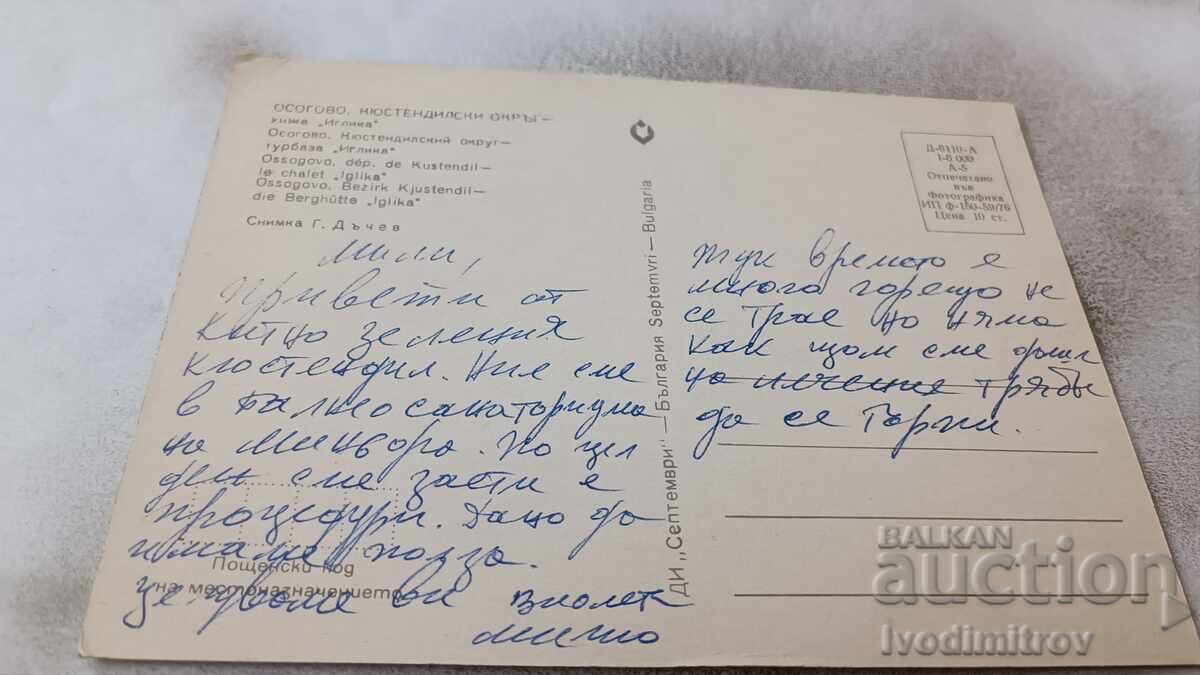 ОСОГОВО, КЮСТЕНДИЛСКИ ОКРЪГ —
хижа „Иглика“
Осогово, Кюстендилский округ —
турбаза „Иглика“
Ossogovo, dép. de Kustendil —
le chalet „Iglika“
Ossogovo, Bezirk Kjustendil —
die Berghütte „Iglika“
Снимка Г. Дъчев
Мили,
Привети от
китно зеления
Кюстендил. Ние сме
в Балносанаториума
на Миньора. По цел
ден сме заети с
процедури. Дано да
имаме полза.
Пощенски код
на местоназначението
Целуваме ви Виолет
Мито
ДИ „Септември“ — България Septemvri — Bulgaria
Д-8110-А
I-6 000
А-5
Отпечатано
във
Фотографика
ИП Ф-150-59/76
Цена 10 ст.
Тук времето е
много горещо не
се трае но няма
как щом сме дошли
на лечение трябв
да се търпи.
BALKAN
auction
Ivodimitrov